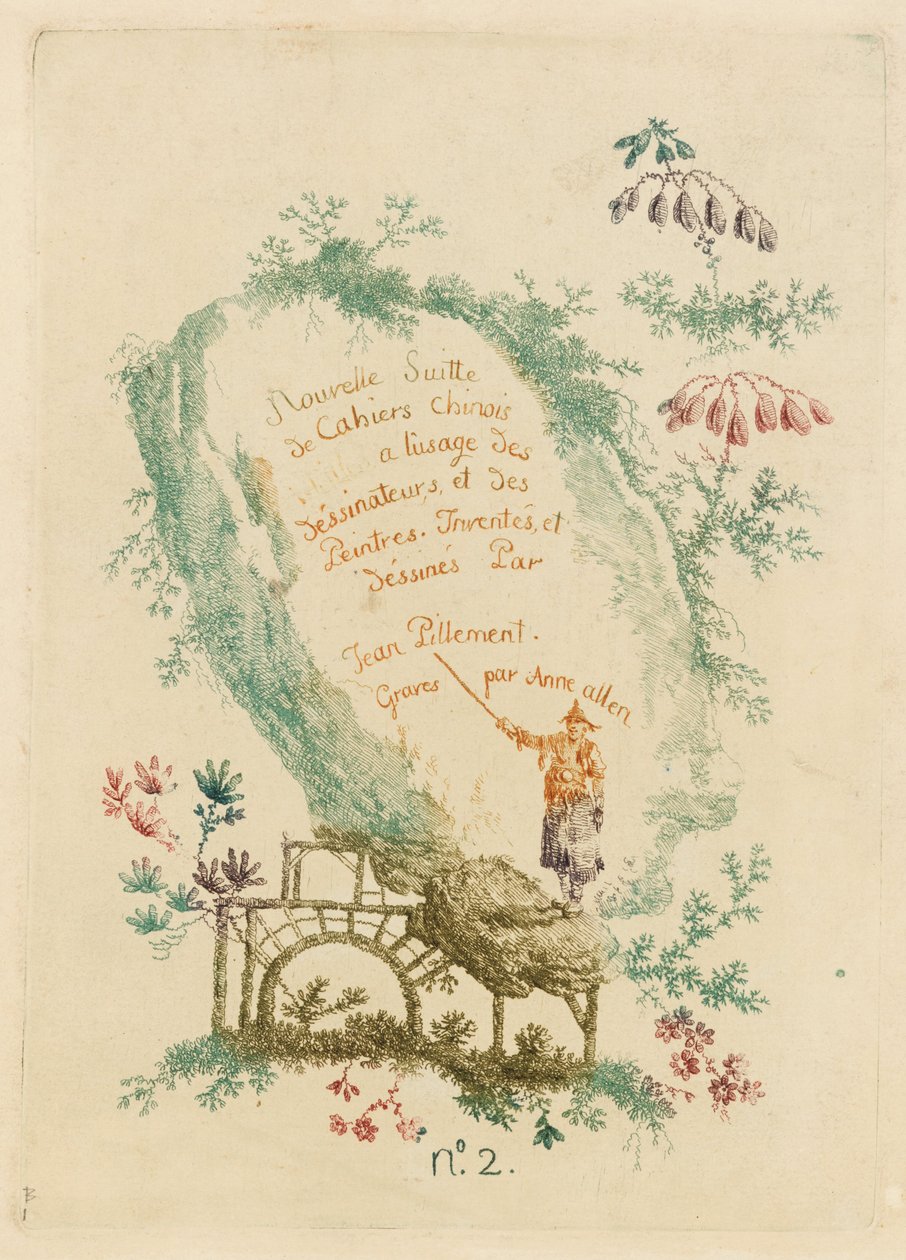 Nouvelle Suitte
de Cahiers chinois
a l'usage des
déssinateur,s, et des
Peintres. Inventés, et
déssinés Par
Jean Pillement.
Graves par Anne allen
nº. 2.
B
1